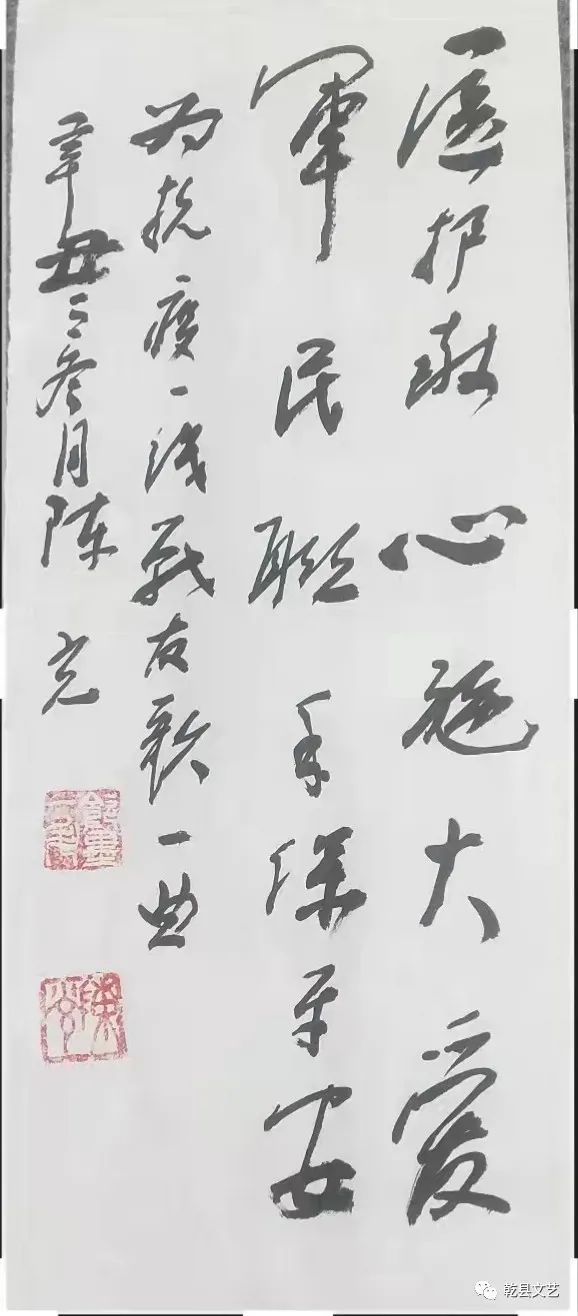 医护献心施大爱
军民联手保平安
为抗疫一线战友歌一曲
辛丑三冬月陈
乾县文艺